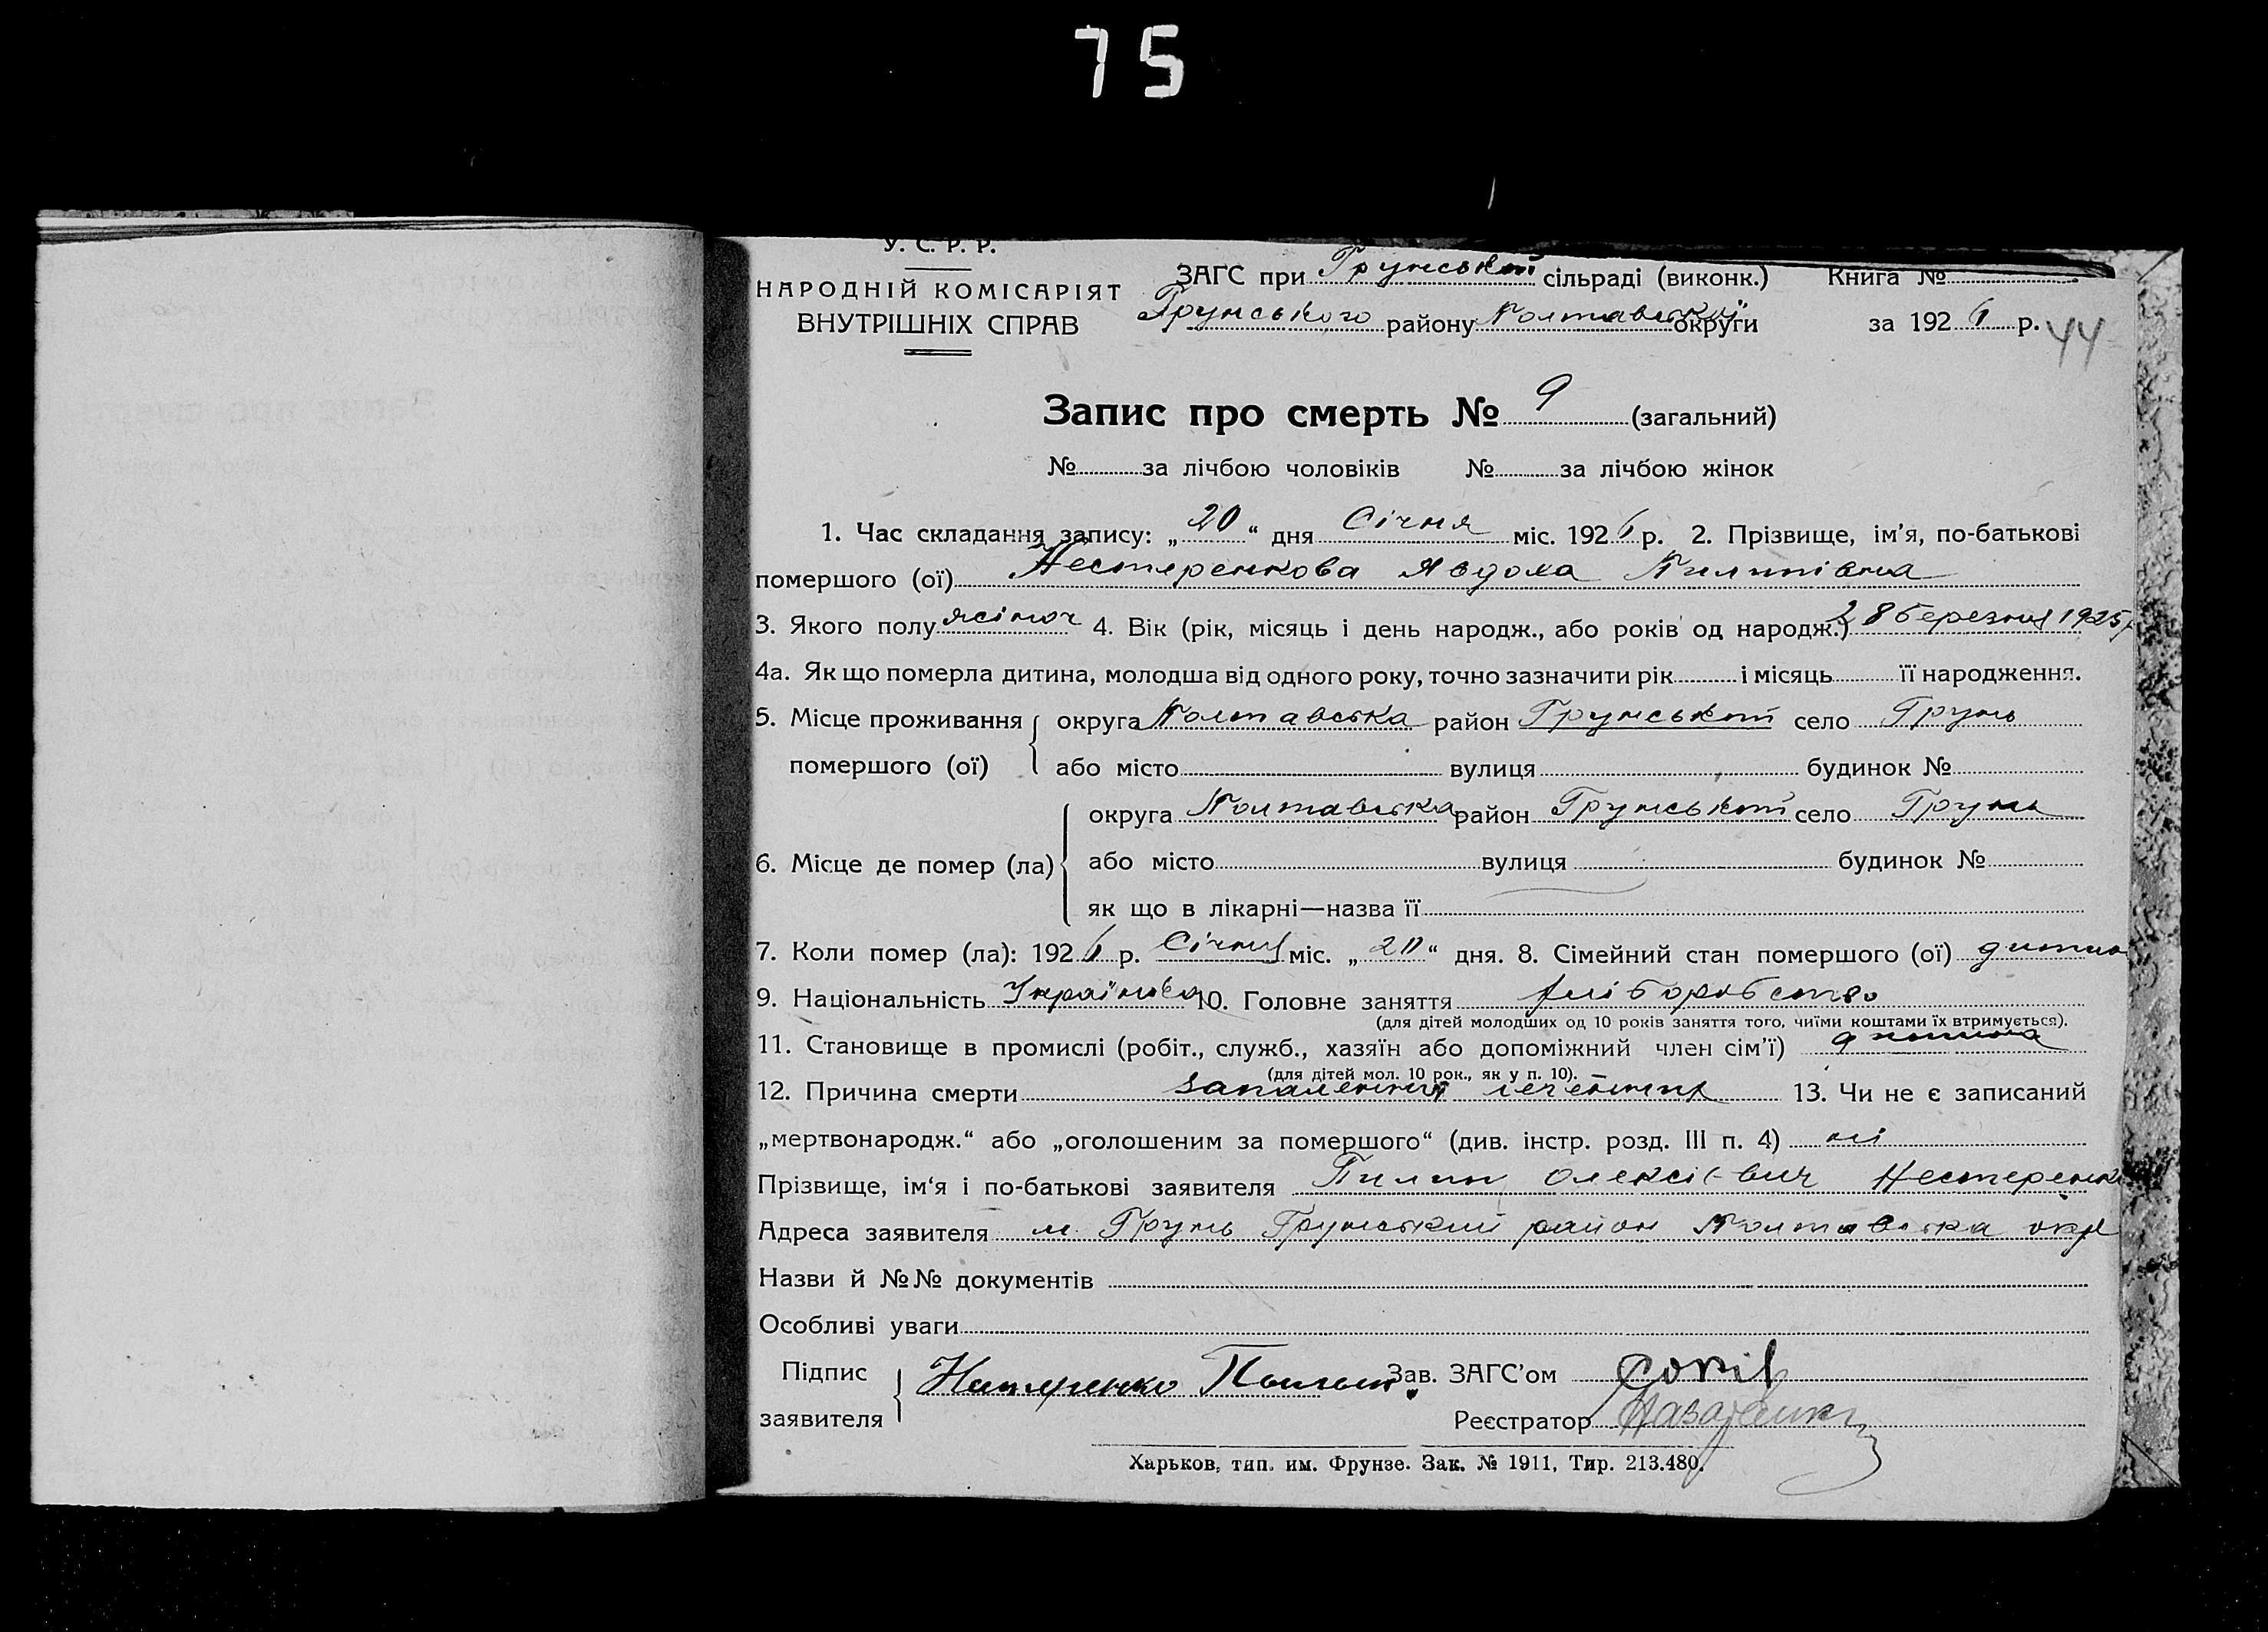 75
У. С. Р. Р.
НАРОДНІЙ КОМІСАРІЯТ
ВНУТРІШНІХ СПРАВ
ЗАГС при Грунській сільраді (виконк.) Книга №
Грунського району Полтавської округи за 1926 р. 44
Запис про смерть № 9 (загальний)
№ за лічбою чоловіків № за лічбою жінок
1. Час складання запису: „20“ дня Січня міс. 1926 р. 2. Прізвище, ім’я, по-батькові
помершого (ої) Нестеренкова Явдоха Пилипівна
3. Якого полу жіноч 4. Вік (рік, місяць і день народж., або років од народж.) 28 березня 1925 р
4а. Як що померла дитина, молодша від одного року, точно зазначити рік і місяць її народження.
5. Місце проживання округа Полтавська район Грунський село Грунь
помершого (ої) або місто вулиця будинок №
округа Полтавська район Грунський село Грунь
6. Місце де помер (ла) або місто вулиця будинок №
як що в лікарні—назва її
7. Коли помер (ла): 1926 р. Січня міс. „20“ дня. 8. Сімейний стан помершого (ої) дитина
9. Національність Українка 10. Головне заняття хліборобство
(для дітей молодших од 10 років заняття того, чиїми коштами їх втримується).
11. Становище в промислі (робіт., служб., хазяїн або допоміжний член сім’ї) дитина
(для дітей мол. 10 рок., як у п. 10).
12. Причина смерти запалення легенних 13. Чи не є записаний
„мертвонародж.“ або „оголошеним за помершого“ (див. інстр. розд. III п. 4) ні
Прізвище, ім‘я і по-батькові заявителя Пилип Олексієвич Нестеренко
Адреса заявителя м. Грунь Грунський район Полтавська окр
Назви й №№ документів
Особливі уваги
Підпис Нестеренко Пилип. Зав. ЗАГС’ом
заявителя Реєстратор Назаренко
Харьков, тип. им. Фрунзе. Зак. № 1911, Тир. 213.480.